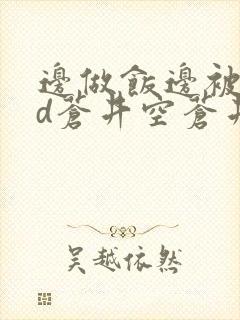 邊做飯邊被
d蒼井空蒼井
吴越依然